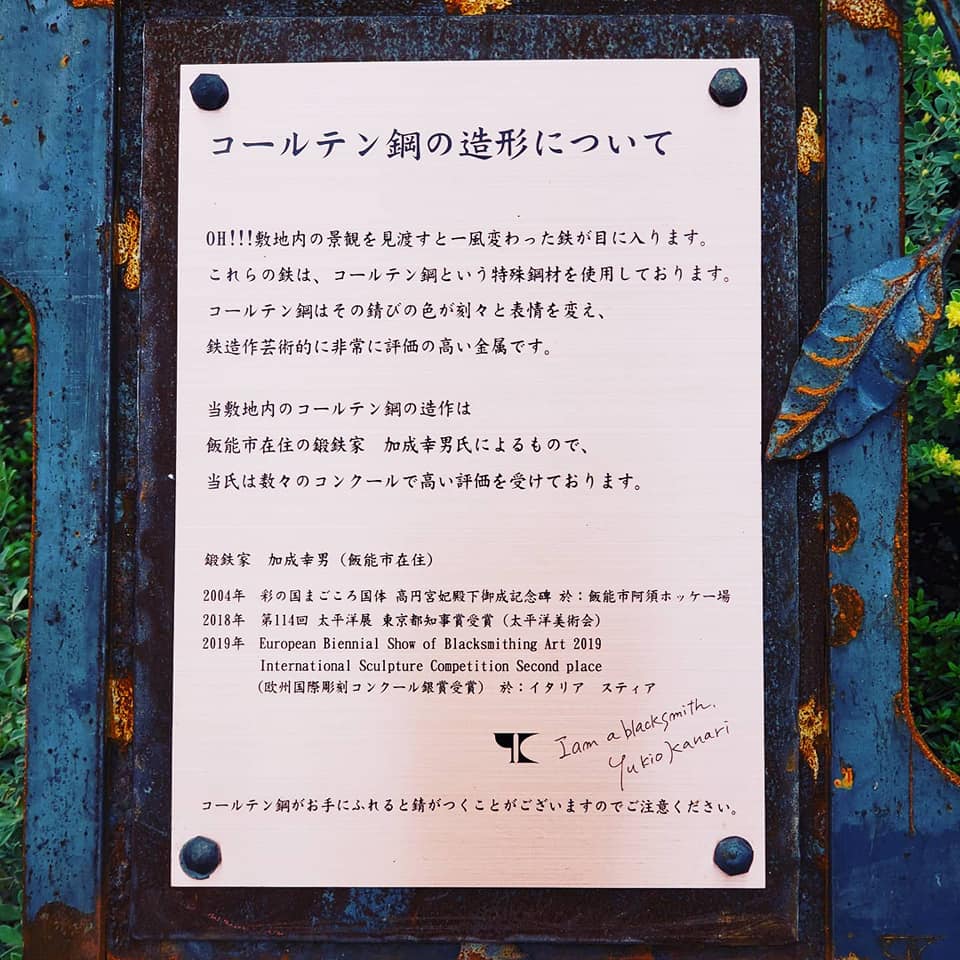 コールテン鋼の造形について
OH!!!敷地内の景観を見渡すと一風変わった鉄が目に入ります。
これらの鉄は、コールテン鋼という特殊鋼材を使用しております。
コールテン鋼はその錆びの色が刻々と表情を変え、
鉄造作芸術的に非常に評価の高い金属です。
当敷地内のコールテン鋼の造作は
飯能市在住の鍛鉄家　加成幸男氏によるもので、
当氏は数々のコンクールで高い評価を受けております。
鍛鉄家　加成幸男（飯能市在住）
2004年　彩の国まごころ国体 高円宮妃殿下御成記念碑 於：飯能市阿須ホッケー場
2018年　第114回 太平洋展 東京都知事賞受賞（太平洋美術会）
2019年　European Biennial Show of Blacksmithing Art 2019
International Sculpture Competition Second place
（欧州国際彫刻コンクール銀賞受賞）　於：イタリア　スティア
I am a blacksmith.
Yukio Kanari
コールテン鋼がお手にふれると錆がつくことがございますのでご注意ください。